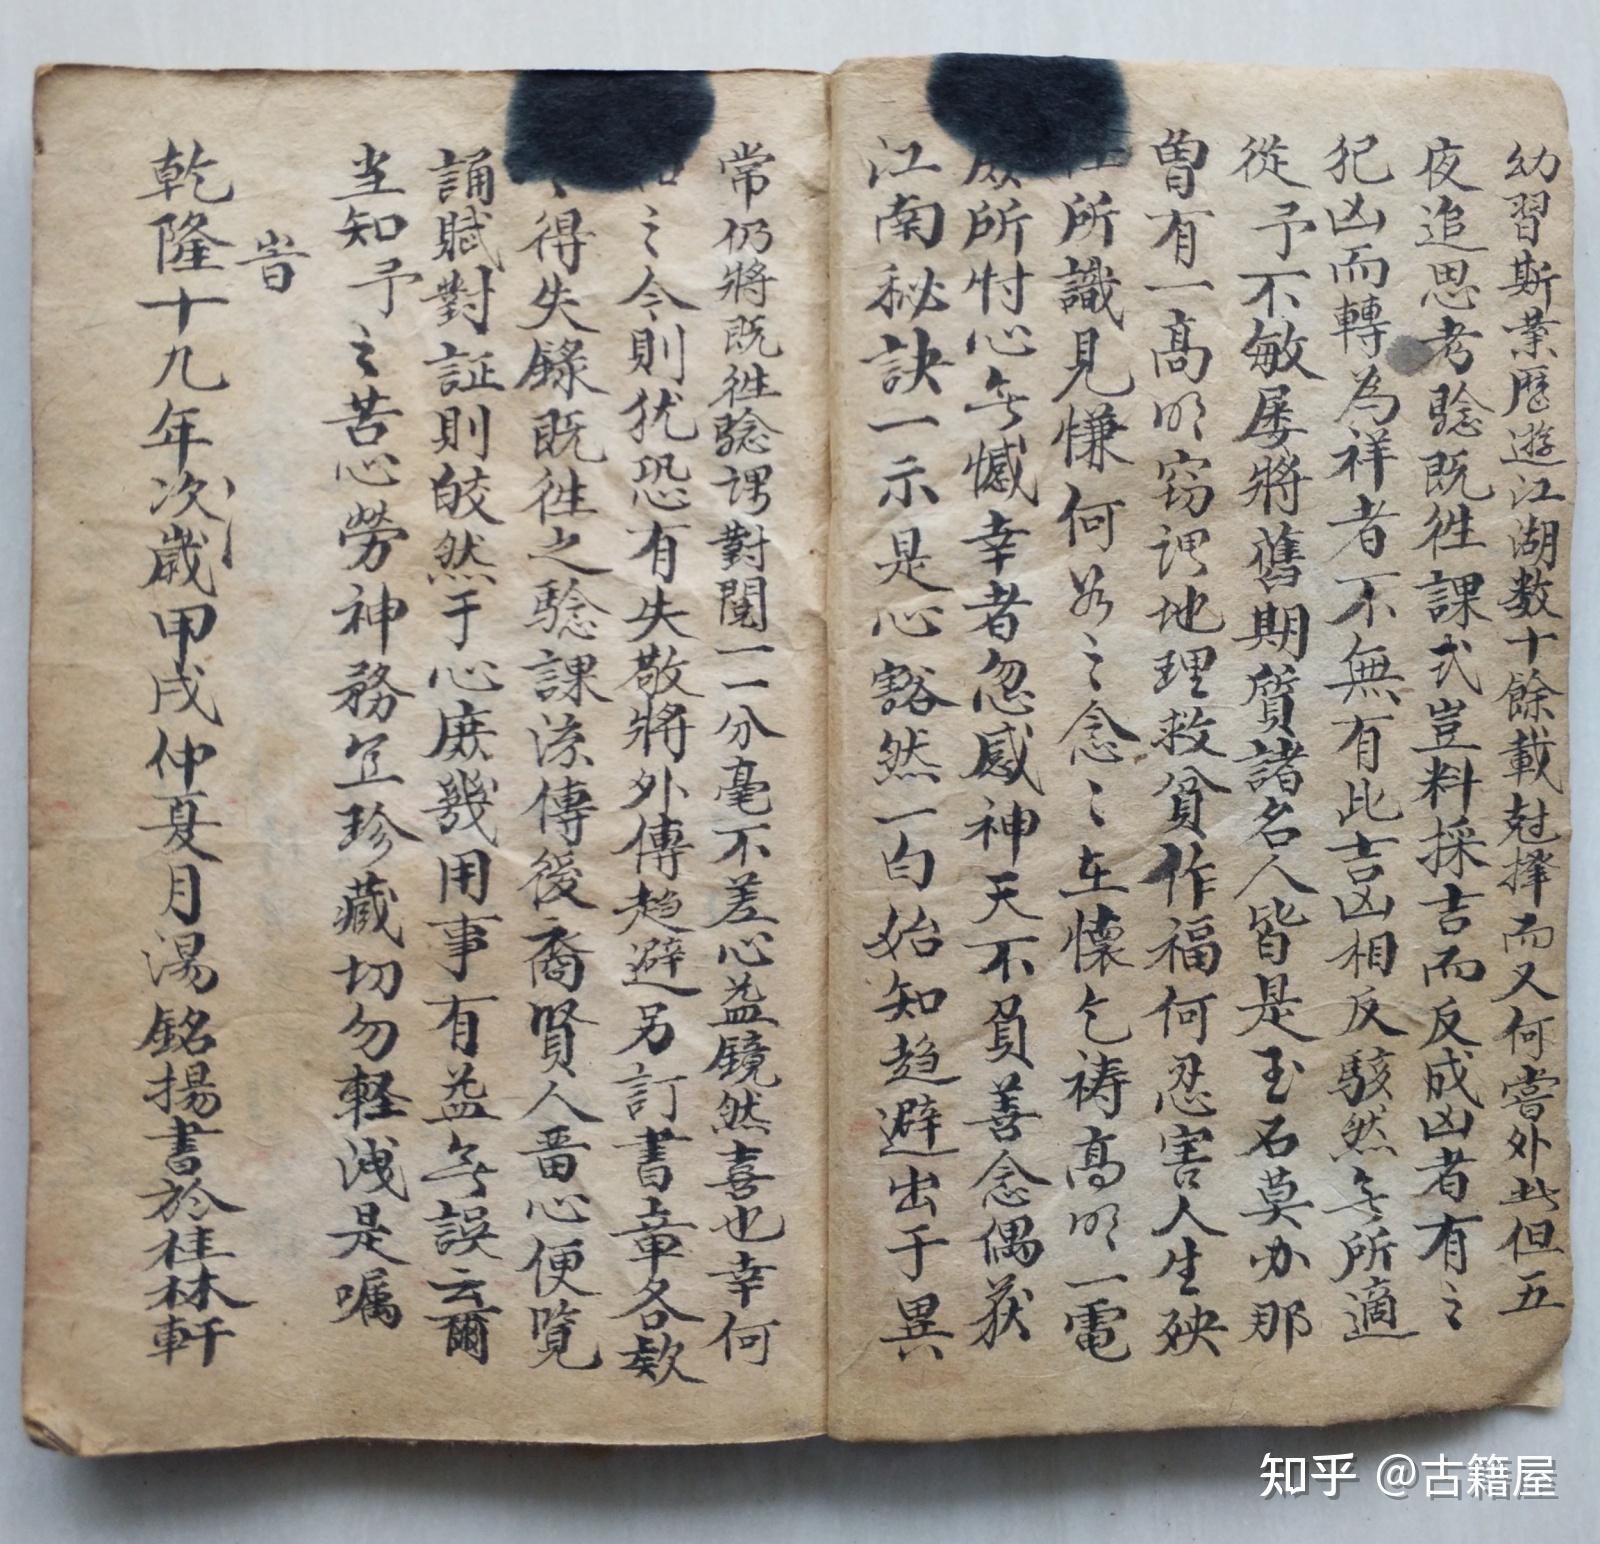 幼習斯業歷遊江湖数十餘載尅擇而又何嘗外此但五
夜追思考騐既徃課式豈料採吉而反成凶者有之
犯凶而轉為祥者不無有此吉凶相反駭然無所適
從予不敏屡將舊期質諸名人皆是玉石莫办那
曽有一高明窃謂地理救貧作福何忍害人生殃
所識見慊何以之念之在懷乞祷高明一電
所忖心無憾幸者忽感神天不負善念偶获
江南秘訣一示是心豁然一白始知趋避出于異
常仍將既徃騐謌對閱一一分毫不差心益鏡然喜也幸何
之今則犹恐有失敬將外傳趋避另訂書章各欸
得失錄既徃之騐課流傳後裔賢人啚心便覽
誦賦對証則皎然于心庻幾用事有益無誤云爾
当知予之苦心勞神務宜珍藏切勿軽洩是嘱
旹
乾隆十九年次歲甲戌仲夏月湯銘揚書於桂林軒
知乎 @古籍屋